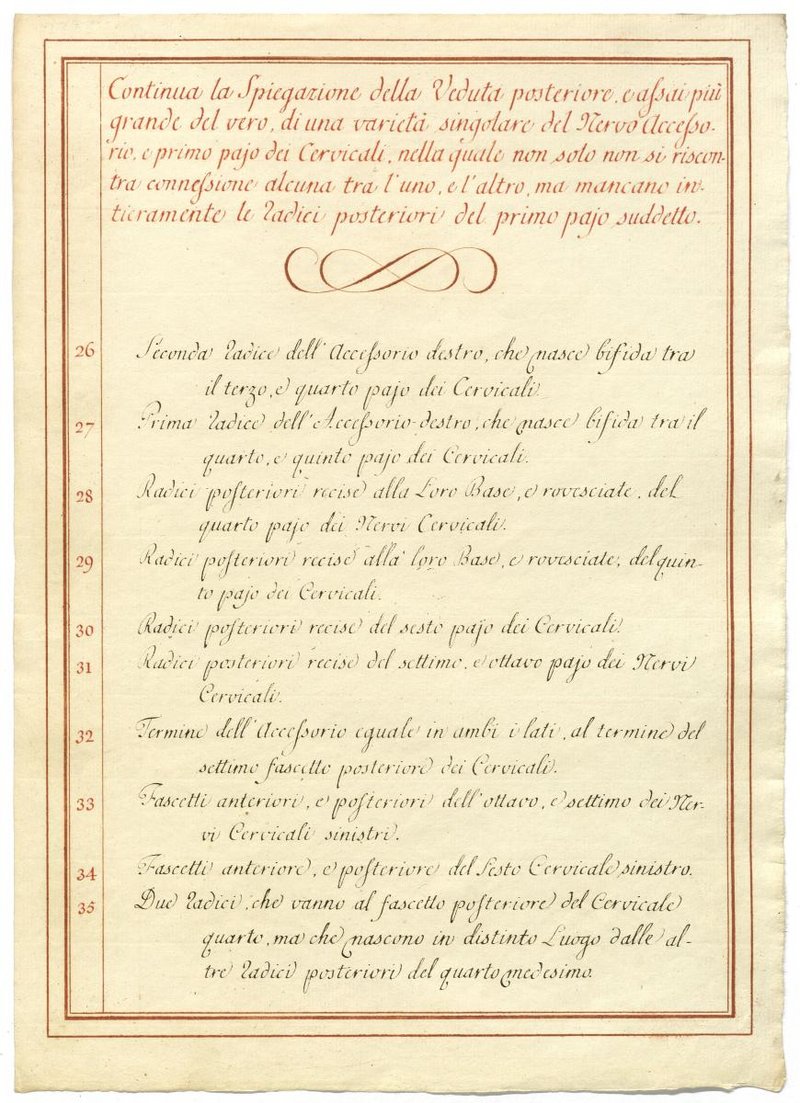 Continua la Spiegazione della Veduta posteriore, e aſsai più
grande del vero, di una varietà singolare del Nervo Acceſso-
rio, e primo pajo dei Cervicali, nella quale non solo non si riscon-
tra conneſsione alcuna tra l'uno, e l'altro, ma mancano in-
tieramente le Radici posteriori del primo pajo suddetto.
26 Seconda Radice dell'Acceſsorio destro, che nasce bifida tra
il terzo, e quarto pajo dei Cervicali.
27 Prima Radice dell'Acceſsorio destro, che nasce bifida tra il
quarto, e quinto pajo dei Cervicali.
28 Radici poſteriori recise alla Loro Base, e rovesciate, del
quarto pajo dei Nervi Cervicali.
29 Radici poſteriori recise alla loro Base, e rovesciate, del quin-
to pajo dei Cervicali.
30 Radici poſteriori recise del sesto pajo dei Cervicali.
31 Radici posteriori recise del settimo, e ottavo pajo dei Nervi
Cervicali.
32 Termine dell'Acceſsorio eguale in ambi i lati, al termine del
settimo fascetto posteriore dei Cervicali.
33 Fascetti anteriori, e poſteriori dell'ottavo, e settimo dei Ner-
vi Cervicali sinistri.
34 Fascetti anteriore, e poſteriore del Sesto Cervicale sinistro.
35 Due Radici, che vanno al fascetto poſteriore del Cervicale
quarto, ma che nascono in distinto Luogo dalle al-
tre Radici posteriori del quarto medesimo.